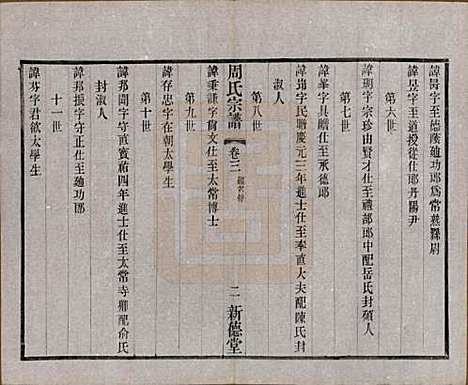 諱昺字至德蔭廸功郎爲常熟縣尉
諱昱字至道授從仕郎丹陽尹
第六世
諱玥字宗珍由賢才仕至禮部郎中配岳氏封碩人
第七世
諱峯字具瞻仕至承德郎
諱崗字民瞻慶元三年進士仕至奉直大夫配陳氏封
淑人
第八世
周氏宗譜
卷三
二
新德堂
諱秉謙字尙文仕至太常博士
第九世
諱存忠字在朝太學生
第十世
諱邦聞字守直寶祐四年進士仕至太常寺卿配俞氏
封淑人
諱邦振字守正仕至廸功郎
十一世
諱芬字君馥太學生